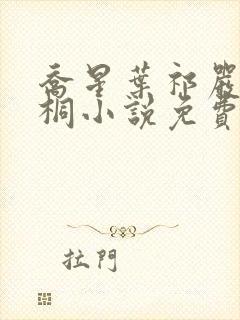 喬星葉祁嚴
桐小說免費
拉門